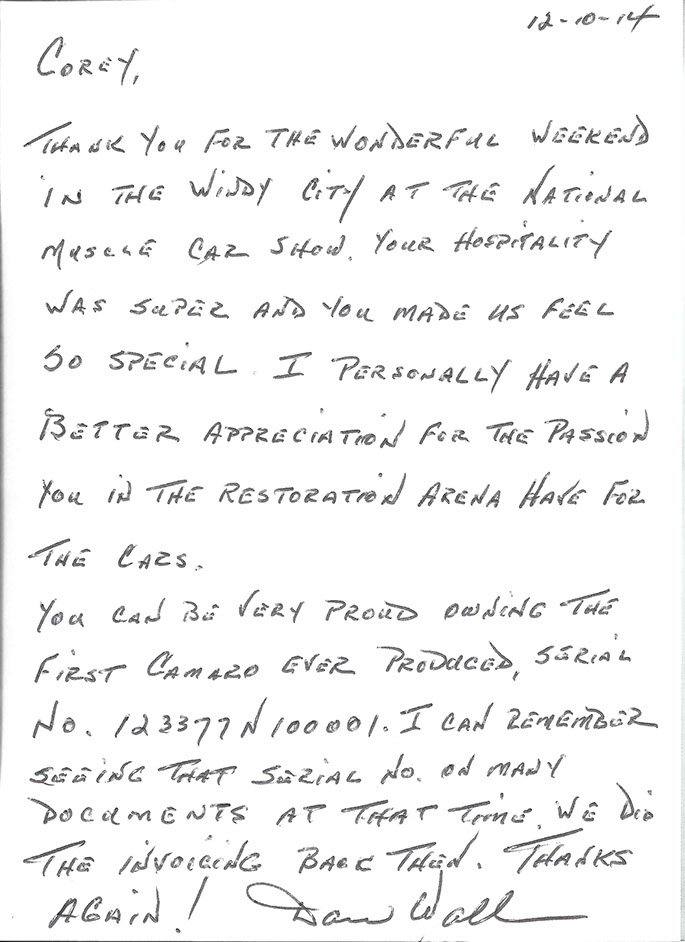 12-10-14
COREY,
THANK YOU FOR THE WONDERFUL WEEKEND
IN THE WINDY CITY AT THE NATIONAL
MUSCLE CAR SHOW. YOUR HOSPITALITY
WAS SUPER AND YOU MADE US FEEL
SO SPECIAL. I PERSONALLY HAVE A
BETTER APPRECIATION FOR THE PASSION
YOU IN THE RESTORATION ARENA HAVE FOR
THE CARS.
YOU CAN BE VERY PROUD OWNING THE
FIRST CAMARO EVER PRODUCED, SERIAL
NO. 123377N100001. I CAN REMEMBER
SEEING THAT SERIAL NO. ON MANY
DOCUMENTS AT THAT TIME. WE DID
THE INVOICING BACK THEN. THANKS
AGAIN! Dan Wall